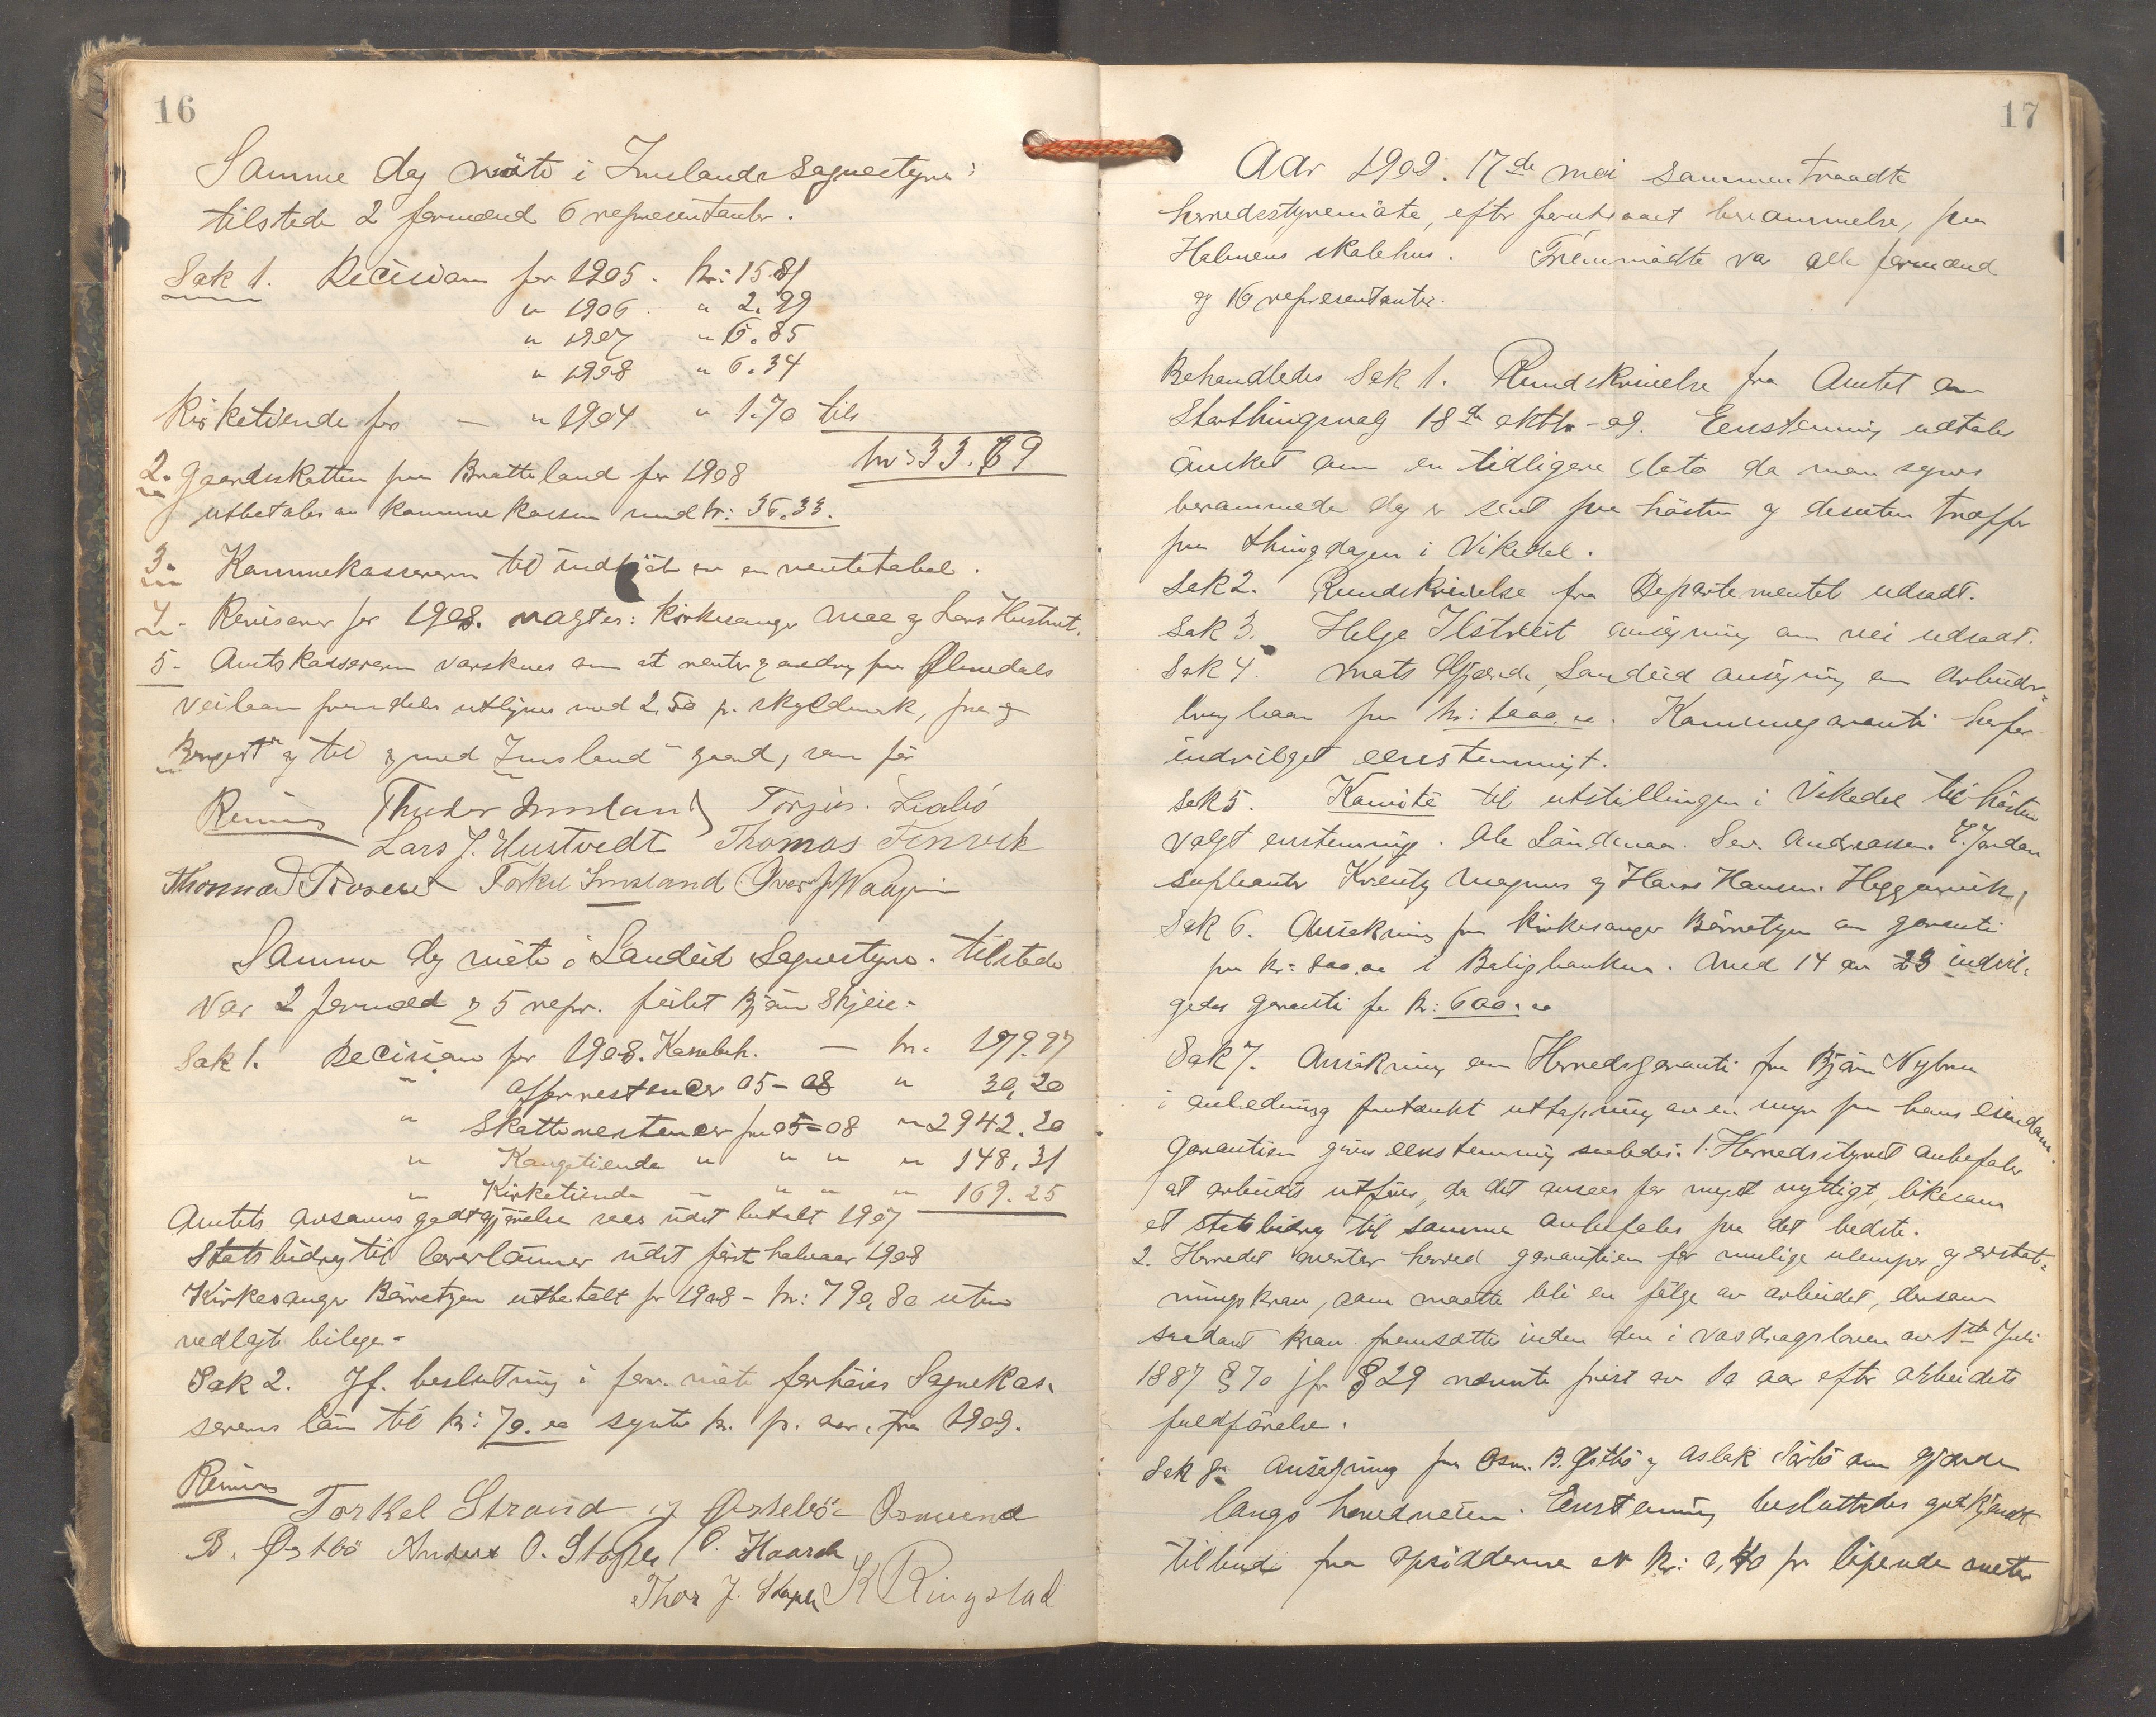 16
Samme dag möte i Imslands Sognestyre:
tilstede 2 formænd 6 representanter.
Sak 1. Decision for 1905. kr: 15.81
" 1906. " 2.99
" 1907 " 6.85
" 1908 " 6.34
Kirketiende for — " 1904 " 1.70 tils
kr: 33.69
2. Gaardskatten paa Bratteland for 1908
utbetales av kommunekassen med kr: 36.33.
3. Kommunekassereren til indkjöb av en rentetabel.
4. Revisorer for 1908. valgtes: Kirkesanger Moe og Lars Hustvet.
5. Amtskassereren varskues om at renter og avdrag paa Ølmedals
veilaan fremdeles utlignes med 2,50 pr. skyldmark, fra og
" og til og med Imsland" gaard, som för
Thudor Imsland Torjus. Liabö
Lars J. Hustvedt Thomas Finvik
Thomas Torkel Imsland Iver J
Samme dag möte i Sandeid Sognestyre. tilstede
var 2 formænd og 5 repr. feilet Björn Skjeie.
Sak 1. Decision for 1908. Kassebeh. — kr. 179.97
" offerrestancer 05–08 " 30,20
" Skatterestancer for 05–08 " 2942.20
" Kongetiende " " " " 148,31
" Kirketiende " " " " 169.25
Amtets avsavnsgodtgjörelse sees utbetalt 1907
Statsbidrag til lærerlönner först halvaar 1908
Kirkesanger Börretzen utbetalt for 1908 – kr: 790,80 uten
vedlagte bilage.
Sak 2. Jf. beslutning i forr. möte forhöies Sognekas-
sererens lön til kr: 70.00 sytti kr. p. aar. fra 1909.
Torkel Strand og Østebö Osmund
B. Østbö Anders O. Stople O. Haarde
Thor J. Stople K Ringstad
17
Aar 1909. 17de mai sammentraadte
herredsstyremöte, efter forutgaaet berammelse, paa
Holmens skolehus. Fremmödte var alle formænd
og 16 representanter.
Behandledes Sak 1. Rundskrivelse fra Amtet om
Storthingsvalg 18de oktbr – 09. Eenstemmig uttales
önsket om en tidligere dato da man synes
berammede dag er sent paa hösten og desuten træffer
paa thingdagen i Vikedal.
Sak 2. Rundskrivelse fra Departementet udsadt.
Sak 3. Helge Ilstveit ansögning om vei udsadt.
Sak 4. Mats Gjærde, Sandeid ansögning om Arbeider-
bruglaan paa kr: 1000.00. Kommunegaranti herfor
indvilget eenstemmigt.
Sak 5. Komite til utstillingen i Vikedal til hösten
valgt enstemmig. Ole Landmaa. Sev. Andreassen. E. Jordan
suplanter Krentz Magnus og Hans Hansen Heggersvik,
Sak 6. Ansökning fra Kirkesanger Börretzen om garanti
paa kr: 800.00 i Boligbanken. Med 14 av 23 indvil-
gedes garanti for kr: 600.00
Sak 7. Ansökning om Herredsgaranti fra Björn Nybru
i anledning paatænkt uttapning av en myr paa hans eiendom.
Garantien gives eenstemmig saaledes: 1. Herredsstyret anbefaler
at arbeidet utföres, da det ansees for meget nyttigt, likesom
et statsbidrag til samme anbefales paa det bedste.
2. Herredet overtar herved garantien for mulige ulemper og erstat-
ningskrav, som maatte bli en fölge av arbeidet, dersom
saadant krav fremsættes inden den i vasdragsloven av 1ste Juli
1887 § 70 jfr § 29 nævnte frist av 10 aar efter arbeidets
fuldförelse.
Sak 8. Ansögning fra Osm. B. Østbö og Aslak Sörbö om gjærde
langs herredsveien. Eenstemmig besluttedes godkjendt
tilbud fra opsidderne av kr: 0,40 pr löpende meter